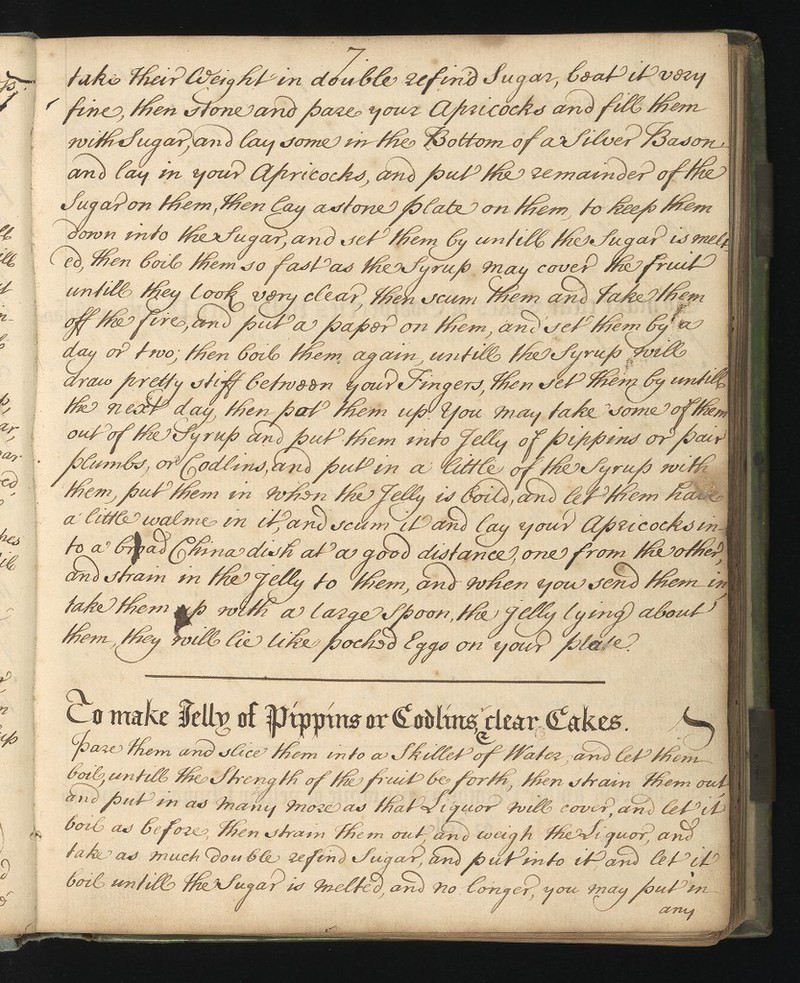 7
take their Weight in double refind Sugar, beat it very
fine, then stone and pare your Apricocks and fill them
with Sugar, and lay some in the Bottom of a Silver Bason
and lay in your Apricocks, and put the remainder of the
Sugar on them, then lay a stone plate on them, to keep them
down into the Sugar, and set them by untill the Sugar is melt
ed, then boil them so fast as the Syrup may cover the fruit
untill they look very clear, then scum them and take them
off the fire, and put a paper on them, and set them by a
day or two; then boil them again, untill the Syrup will
draw pretty stiff between your Fingers, then set them by untill
the next day, then pot them up. You may take some of them
out of the Syrup and put them into Jelly of pippins or pair
plumbs, or Codlins, and put in a little of the Syrup with
them, put them in when the Jelly is boild, and let them have
a little walme in it, and scum it and lay your Apricocks in-
to a broad China dish at a good distance, one from the other,
and strain in the jelly to them, and when you send them in,
take them up with a large Spoon, the jelly lying about
them, they will lie like poched Eggs on your plate.
To make Jelly of Pippins or Codlins, & clear Cakes.
Pare them and slice them into a Skillet of Water, and let them
boil, untill the Strength of the fruit be forth, then strain them out
and put in as many more as that Liquor will cover, and let it
boil as before, then strain them out, and weigh the Liquor, and
take as much double refind Sugar, and put into it, and let it
boil untill the Sugar is melted, and no longer, you may put in
any